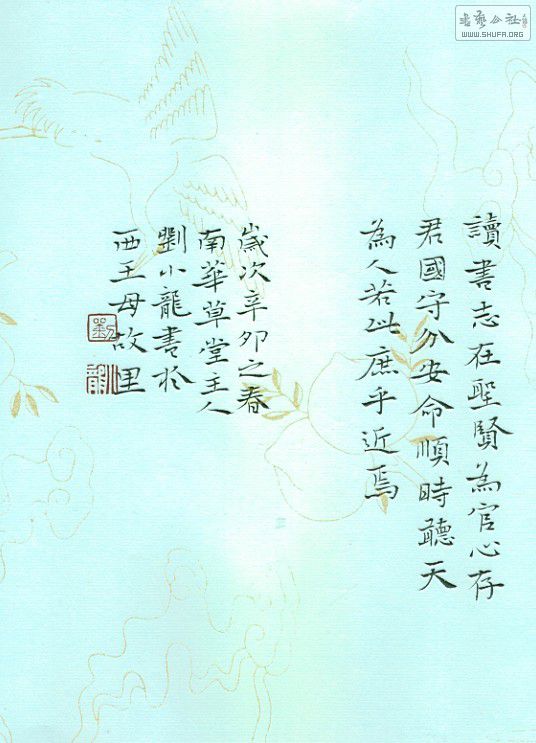 讀書志在聖賢為官心存
君國守分安命順時聽天
為人若此庶乎近焉
歲次辛卯之春
南華草堂主人
劉小龍書於
西王母故里
劉
書藝公社
WWW.SHUFA.ORG